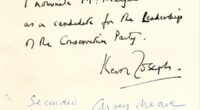 I nominate Mr
as a candidate for the Leadership
of the Conservative Party.
Keith Joseph.
Seconded Airey Neave